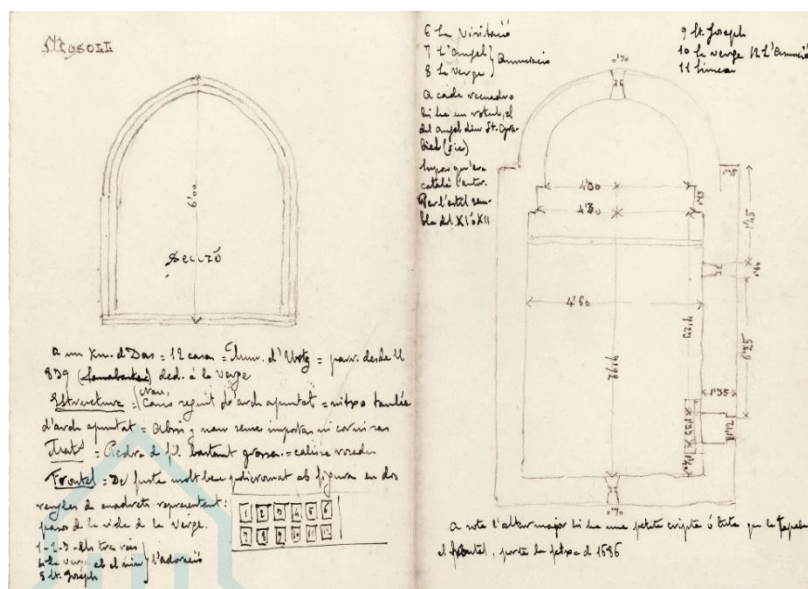 Mosoll
6'00
Secció
a un Km. d'Das = 12 casas = Mun. d'Urtg = parr. desde el
839 ded. á la Verge
Estructura = Nau, Canó seguit d'arch apuntat = nitxo també
d'arch apuntat = Absis y nau sense impostas ni cornisas
= Piedra de fil. bastant grossa =
Frontal = De fusta molt ben policromat ab figuras en dos
rengles de cuadrets representant:
pasos de la vida de la Verge.
1 2 3 4 5 6
7 8 9 10 11 12
1-2-3 - Els tres reis
4 La Verge ab el nin
5 St. Joseph
l'adoració
6 La Visitació
7 L'Angel
8 La Verge
Anunciació
9 St. Joseph
10 La Verge 12 L'Anunció
11 Simeon
a cada recuadro
hi ha un rotul, el
del angel diu St. Gra-
biel (sic)
Suposo qu'era
catalá l'autor.
Per l'estil sem-
bla del XI ó XII
0'70
4'00
4'30
4'50
1'45
0'60
6'25
1'35
0'70
a sota l'altar major hi ha una petita cripta ó que la tapaba
el frontal, porta la fetxa d 1586